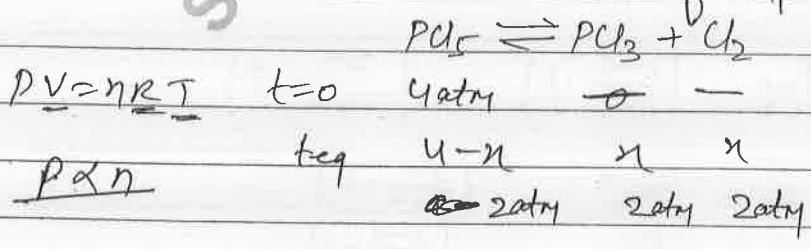 PCl5 ⇌ PCl3 + Cl2
PV=nRT t=0 4atm 0 —
teq 4-x x x
P∝n 2atm 2atm 2atm